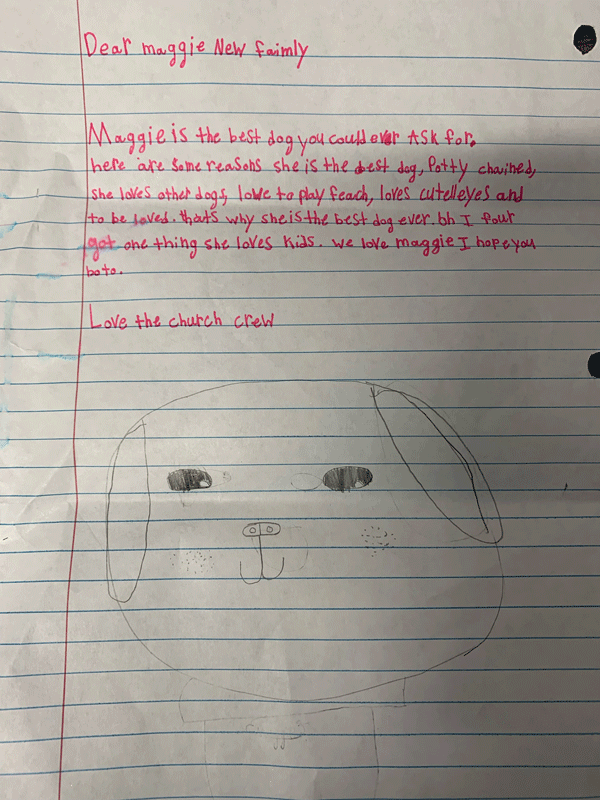 Dear maggie New faimly
Maggie is the best dog you could ever ASK for.
here are some reasons she is the best dog, Potty chained,
she loves other dogs, love to play feach, loves cutelleyes and
to be loved. thats why she is the best dog ever. bh I four
got one thing she loves kids. we love maggie I hope you
boto.
Love the church crew